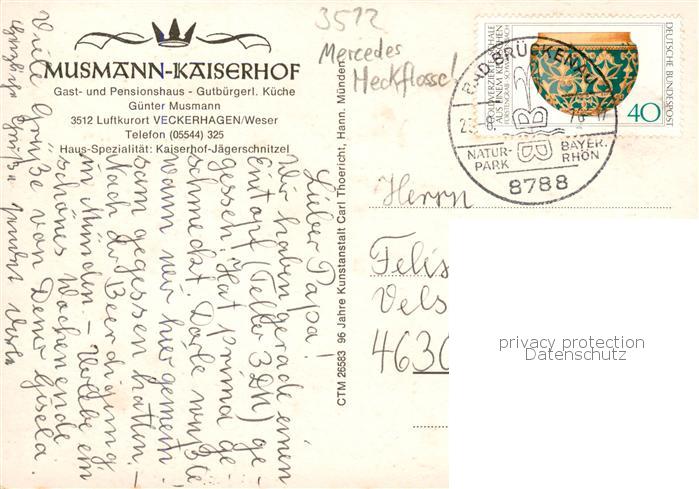 3512
Mercedes
Heckflosse!
MUSMANN-KAISERHOF
Gast- und Pensionshaus - Gutbürgerl. Küche
Günter Musmann
3512 Luftkurort VECKERHAGEN/Weser
Telefon (05544) 325
Haus-Spezialität: Kaiserhof-Jägerschnitzel
Lieber Papa!
Wir haben gerade einen
Eintopf (Teller 3 DM) ge-
gessen. Hat prima ge-
schmeckt. Dorle wußte
wann wir hier gemein-
sam gegessen hatten. -
Nach der Beerdigung
in Münden. - Verlebe ein
schönes Wochenende
von Deiner Gisela.
Viele Grüße
Herzliche Grüße
CTM 26583 96 Jahre Kunstanstalt Carl Thoericht, Hann. Münden
DEUTSCHE BUNDESPOST
40
BAD BRÜCKENAU
NATUR-
PARK
BAYER.
RHÖN
8788
Herrn
Felis
Vels
4630
privacy protection
Datenschutz